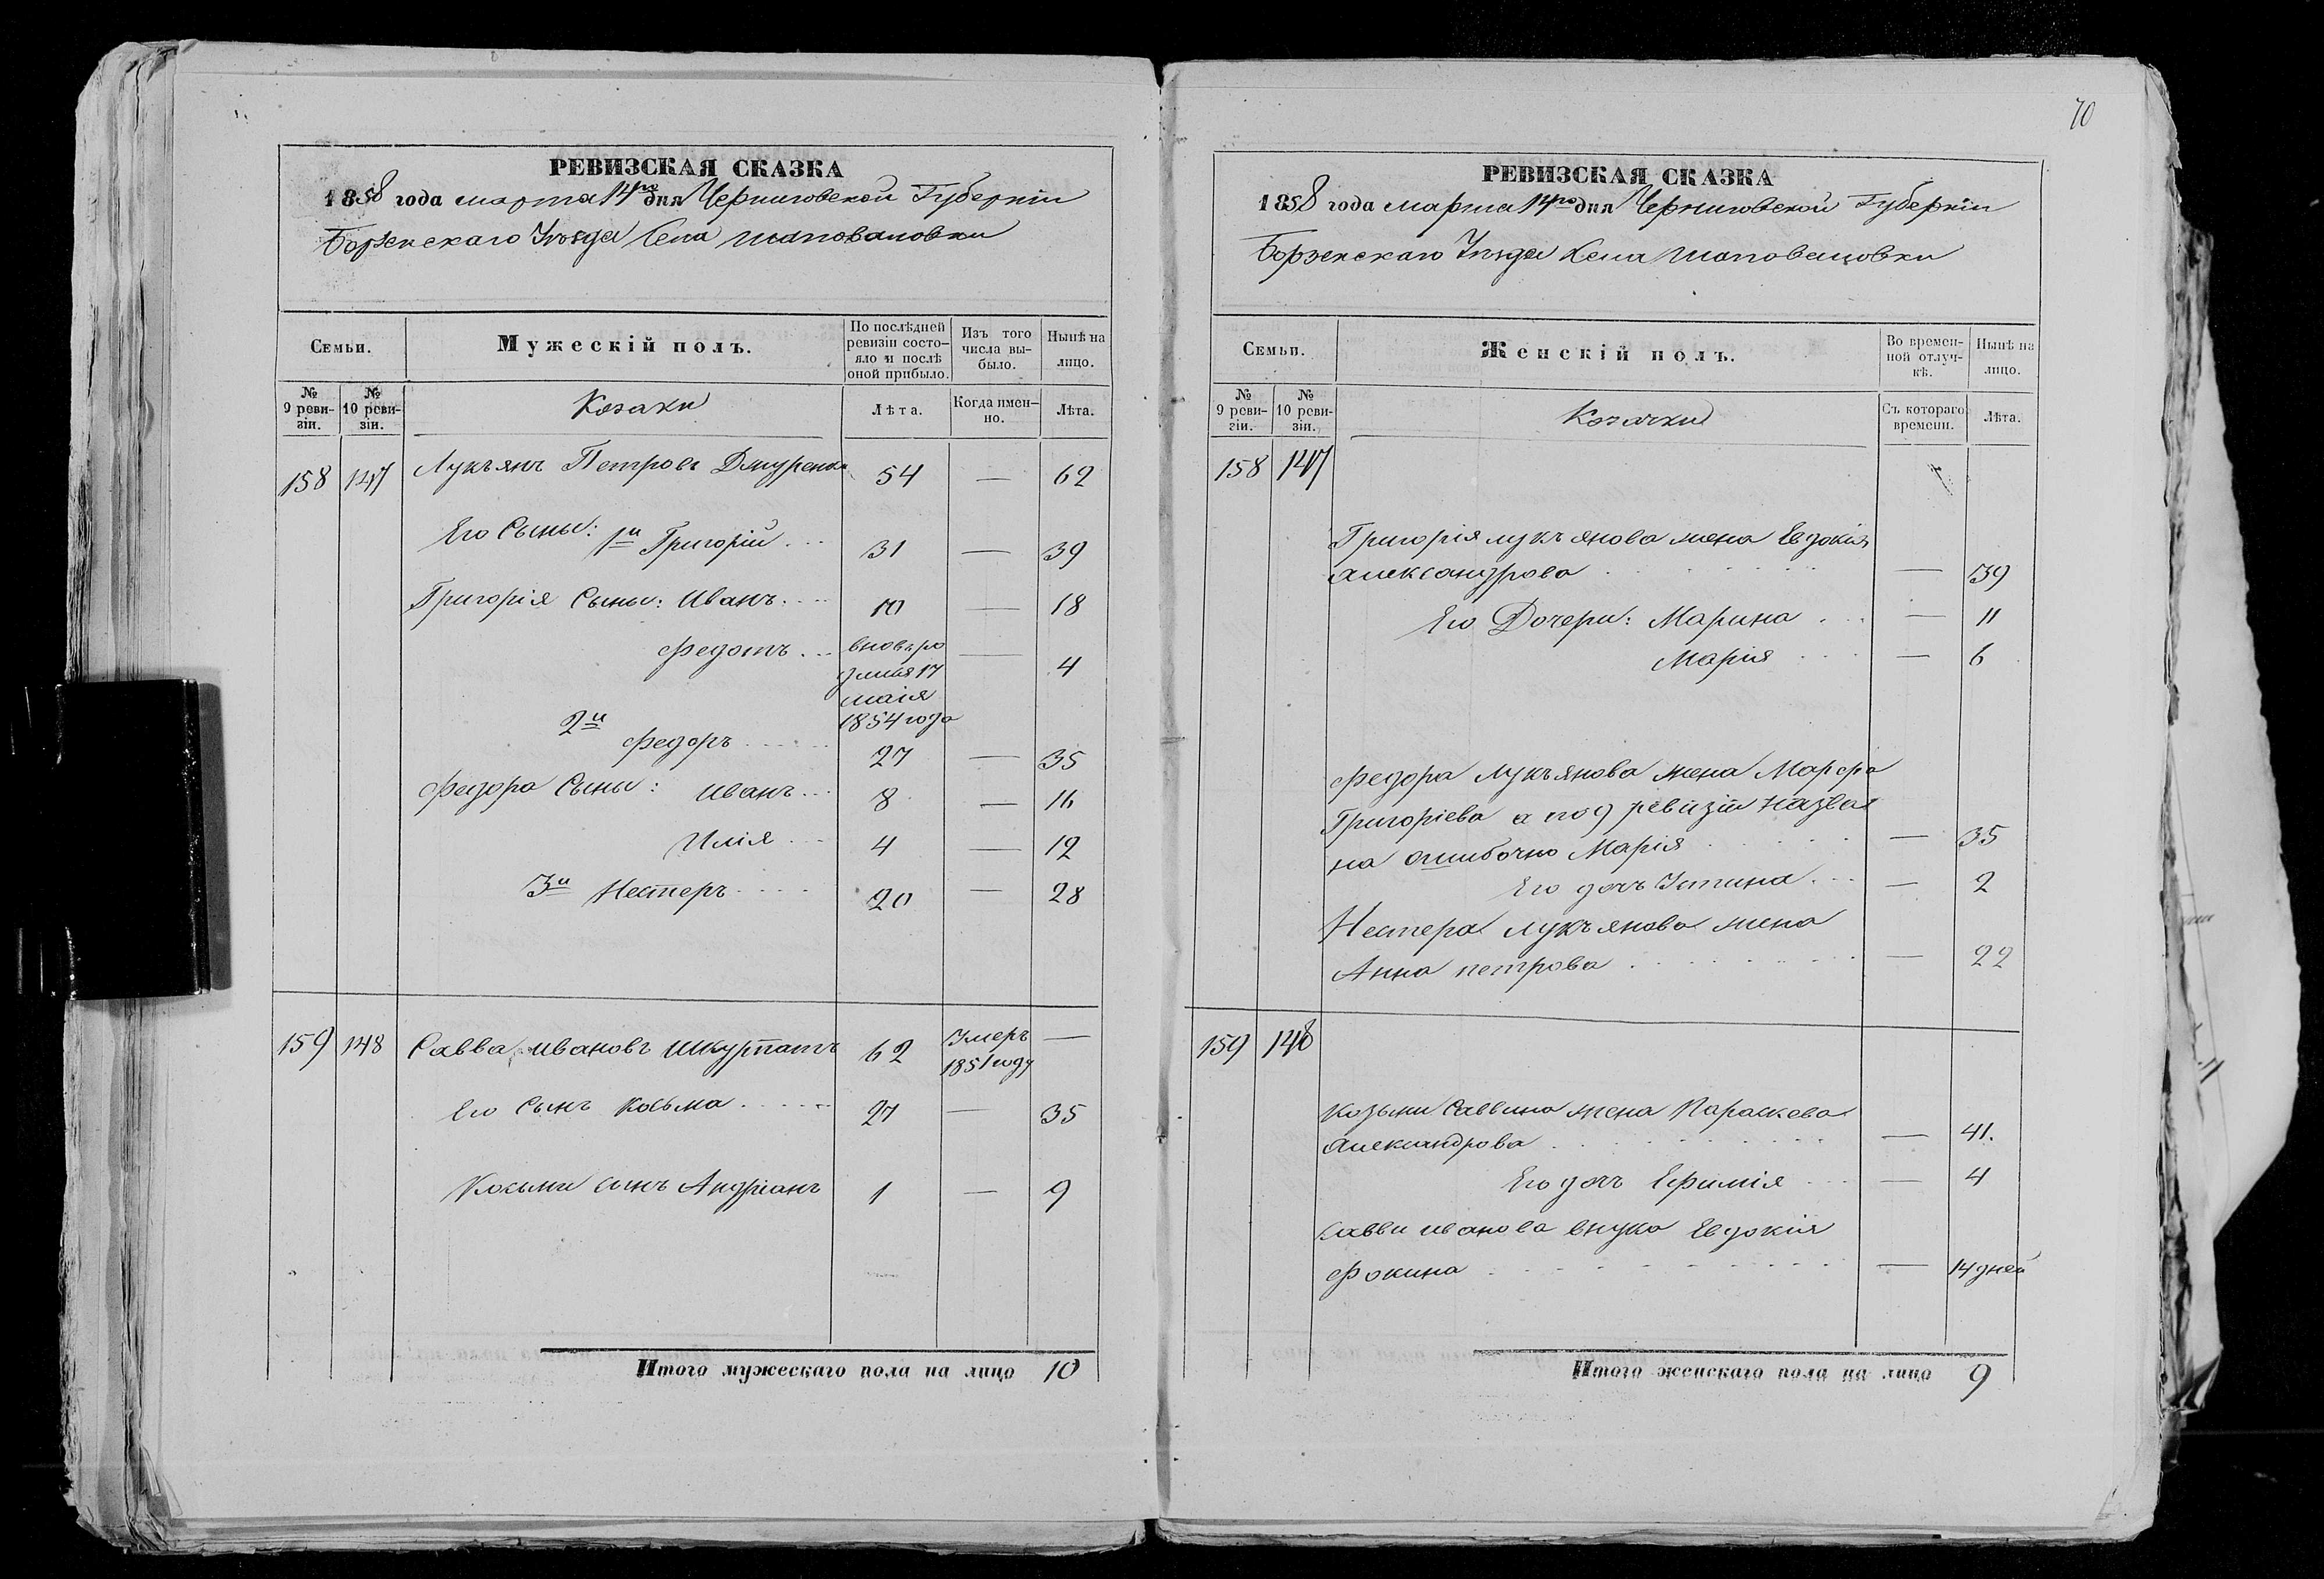 70
РЕВИЗСКАЯ СКАЗКА
1858 года марта 14го дня Черниговской Губерніи
Борзенскаго Уѣзда Села Шаповаловки
Семьи.
Мужескій полъ.
По послѣдней ревизіи состояло и послѣ оной прибыло.
Изъ того числа выбыло.
Нынѣ на лицо.
№ 9 ревизіи.
№ 10 ревизіи.
Козаки
Лѣта.
Когда именно.
Лѣта.
158 147 Лукъянъ Петровъ 54 — 62
Его Сыны: 1й Григорій 31 — 39
Григорія Сыны: Иванъ 10 — 18
Федотъ вновь ро — 4
17
маія
1854 года
2й Федоръ 27 — 35
Федора Сыны: Иванъ 8 — 16
Илія 4 — 12
3й Нестеръ 20 — 28
159 148 Савва Ивановъ Шкурпатъ 62 Умеръ —
1851 году
Его Сынъ Косьма 27 — 35
Косьми сынъ Андріанъ 1 — 9
Итого мужескаго пола на лицо 10
РЕВИЗСКАЯ СКАЗКА
1858 года марта 14го дня Черниговской Губерніи
Борзенскаго Уѣзда Села Шаповаловки
Семьи.
Женскій полъ.
Во временной отлучкѣ.
Нынѣ на лицо.
№ 9 ревизіи.
№ 10 ревизіи.
Козачки
Съ котораго времени.
Лѣта.
158 147
Григорія лукъянова жена Евдокія
Александрова — 39
Его Дочери: Марина — 11
Марія — 6
Федора Лукъянова жена Марфа
Григоріева а по 9 ревизіи назва
на ошибочно Марія — 35
Его дочь Устина — 2
Нестера лукъянова жена
Анна петрова — 22
159 148
Козьми Саввина жена Параскева
Александрова — 41.
Его дочь Ефимія — 4
Савви иванова внука Евдокія
Фокина — 14 дней
Итого женскаго пола на лицо 9